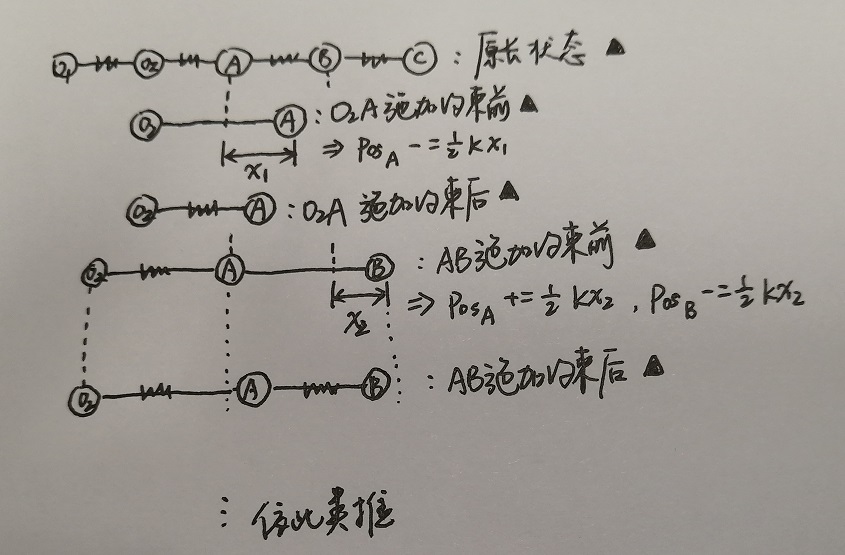 O₁ O₂ A B C : 原长状态 ▲
O₂ A : O₂A 施加约束前 ▲
x₁ ⇒ Pos_A -= ½ k x₁
O₂ A : O₂A 施加约束后 ▲
O₂ A B : AB施加约束前 ▲
x₂ ⇒ Pos_A += ½ k x₂ , Pos_B -= ½ k x₂
O₂ A B : AB施加约束后 ▲
⋮ 依此类推